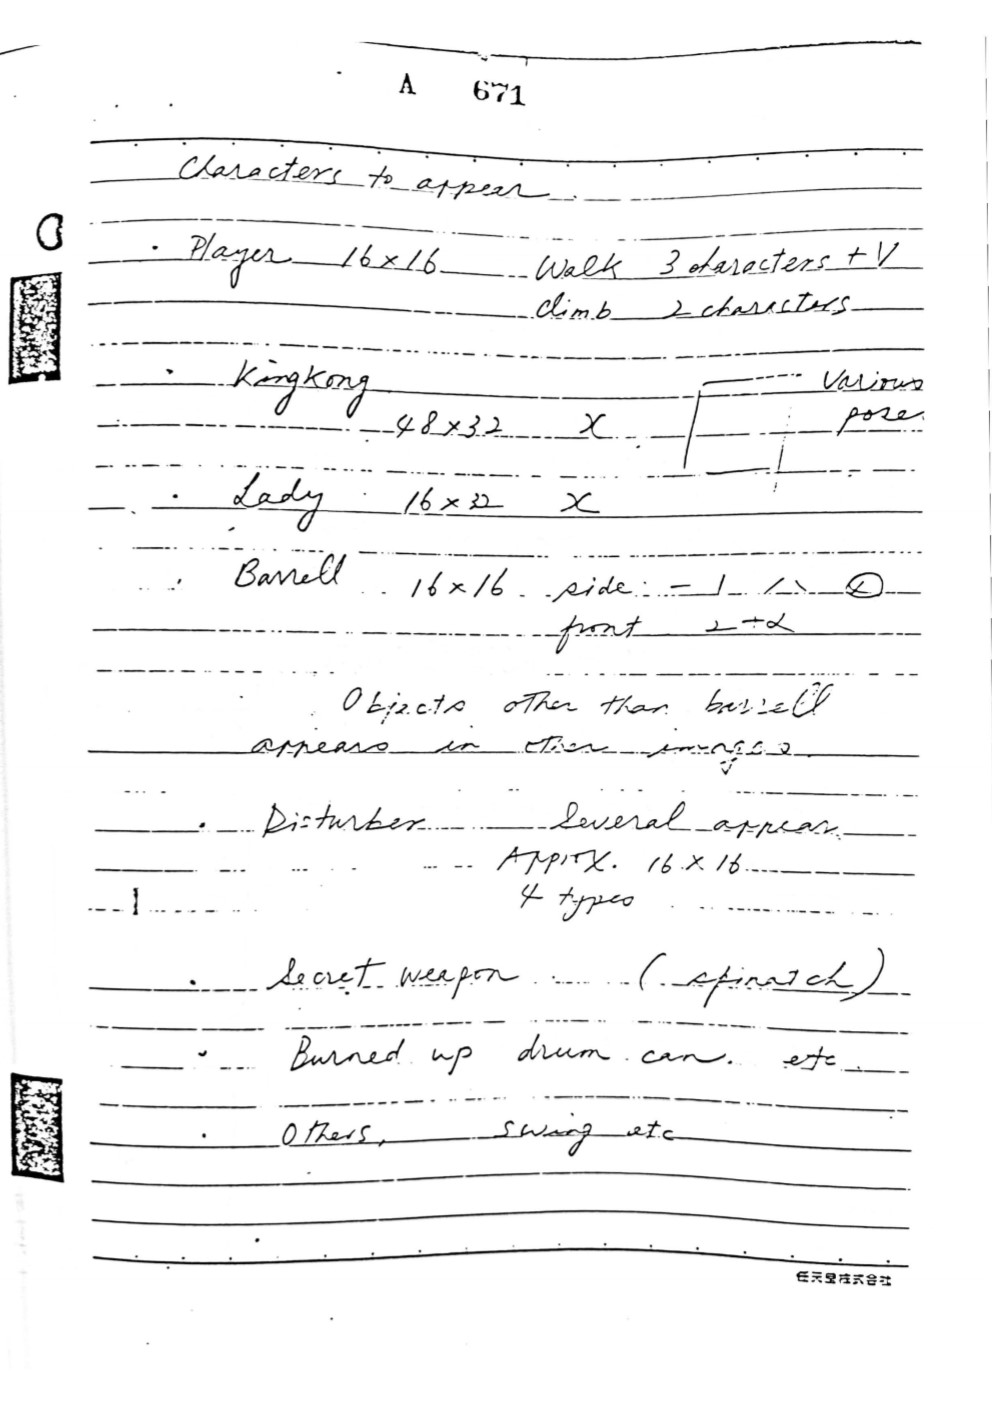 A 671
Characters to appear.
· Player 16×16 Walk 3 characters + V
Climb 2 characters
· KingKong Various
48×32 X pose
· Lady 16×32 X
· Barrell 16×16 side: − | / \
front 2+α
Objects other than barrell
appears in other images
· Disturber Several appear
Approx. 16×16
4 types
· Secret weapon (spinatch)
· Burned up drum can. etc.
· Others, swing etc
任天堂株式会社